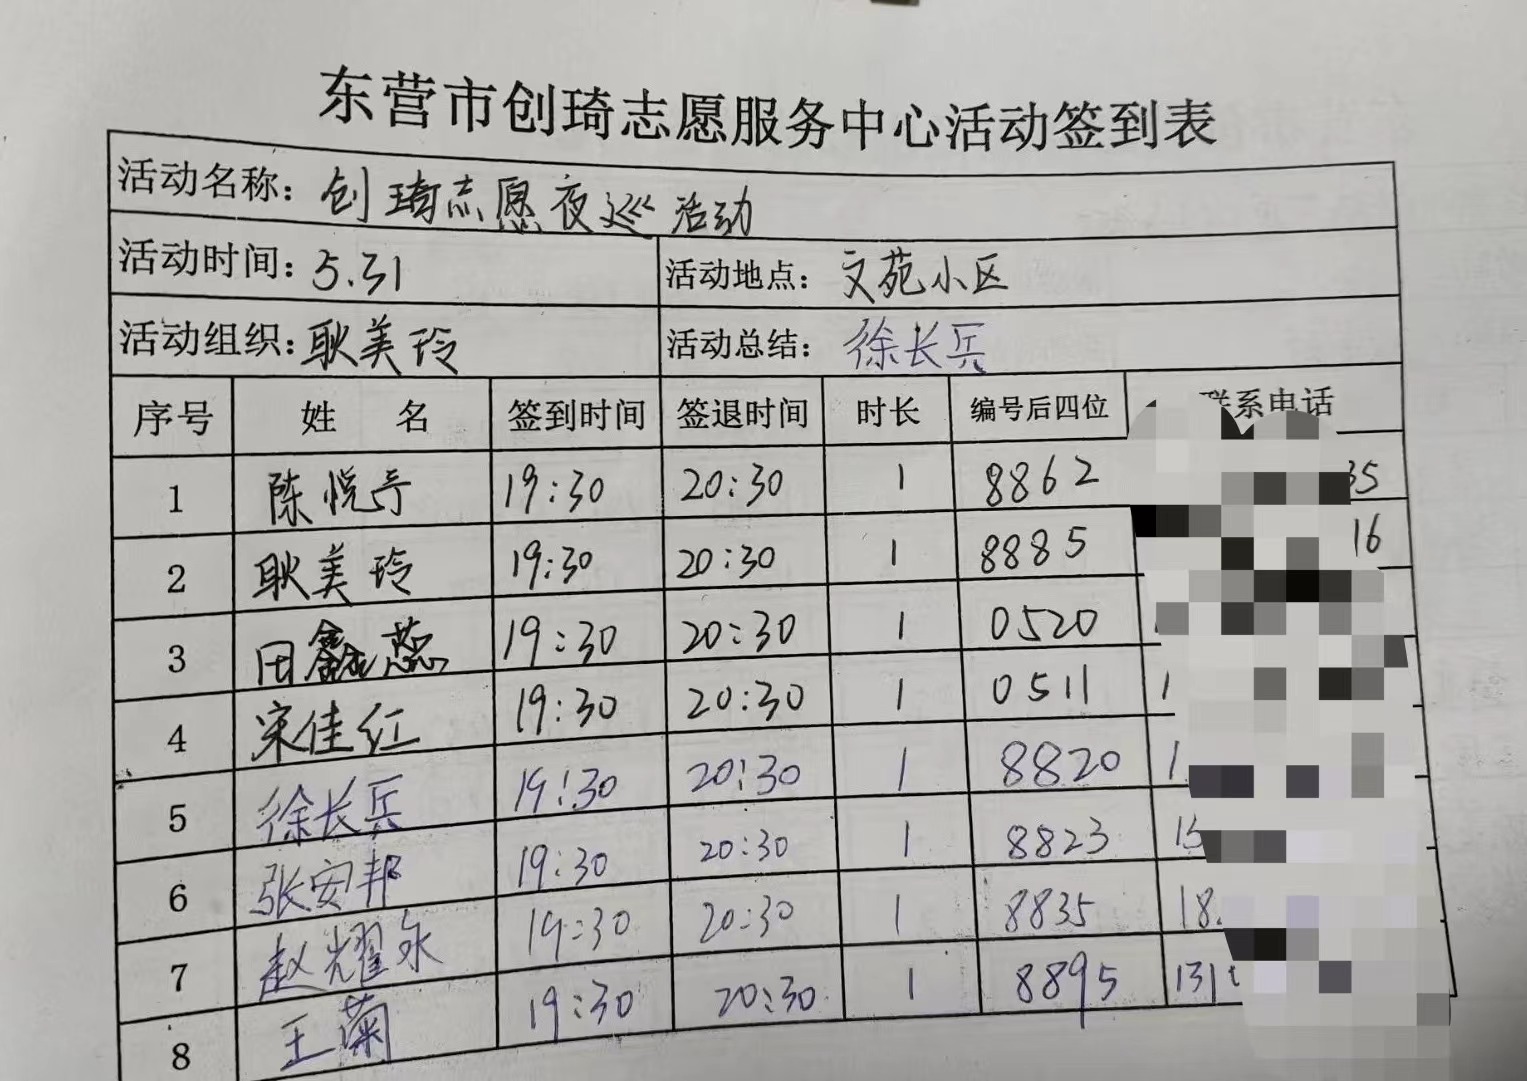 东营市创琦志愿服务中心活动签到表
活动名称：创琦志愿夜巡活动
活动时间：5.31 活动地点：文苑小区
活动组织：耿美玲 活动总结：徐长兵
序号 姓 名 签到时间 签退时间 时长 编号后四位 联系电话
1 陈悦亭 19:30 20:30 1 8862 35
2 耿美玲 19:30 20:30 1 8885 16
3 田鑫蕊 19:30 20:30 1 0520
4 宋佳红 19:30 20:30 1 0511 1
5 徐长兵 19:30 20:30 1 8820 1
6 张安邦 19:30 20:30 1 8823 15
7 赵耀永 19:30 20:30 1 8835 18
8 王菊 19:30 20:30 1 8895 131